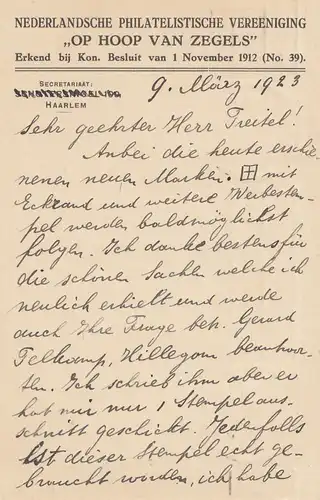 NEDERLANDSCHE PHILATELISTISCHE VEREENIGING
„OP HOOP VAN ZEGELS”
Erkend bij Kon. Besluit van 1 November 1912 (No. 39).
SECRETARIAAT:
HAARLEM
9. März 1923
Sehr geehrter Herr Treitel!
Anbei die heute erschie-
nenen neuen Marken. ⊞ mit
Eckrand und weitere Werbestem-
pel werden baldmöglichst
folgen. Ich danke bestens für
die schönen Sachen welche ich
neulich erhielt und werde
auch Ihre Frage betr. Gerard
Telkamp, Hillegom beantwor-
ten. Ich schrieb ihm aber er
hat mir nur 1 Stempelaus-
schnitt geschickt. Jedenfalls
ist dieser Stempel echt ge-
braucht worden, ich habe